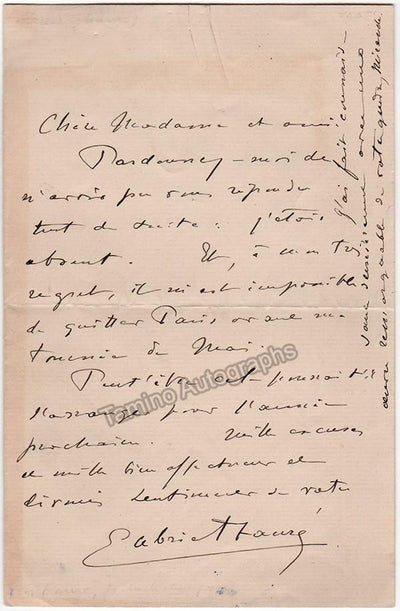 Chère Madame et amie
Pardonnez-moi de
n'avoir pu vous répondre
tout de suite : j'étais
absent. Et, à mon très
regret, il m'est impossible
de quitter Paris avant ma
tournée de Mai.
Peut'être cela pourrait-il
s'arranger pour l'année
prochaine. Mille excuses
et mille bien affectueux et
dévoués sentiments de votre
Gabriel Fauré
J'ai fait connais-
sance avec une
œuvre remarquable de
Tamino Autographs